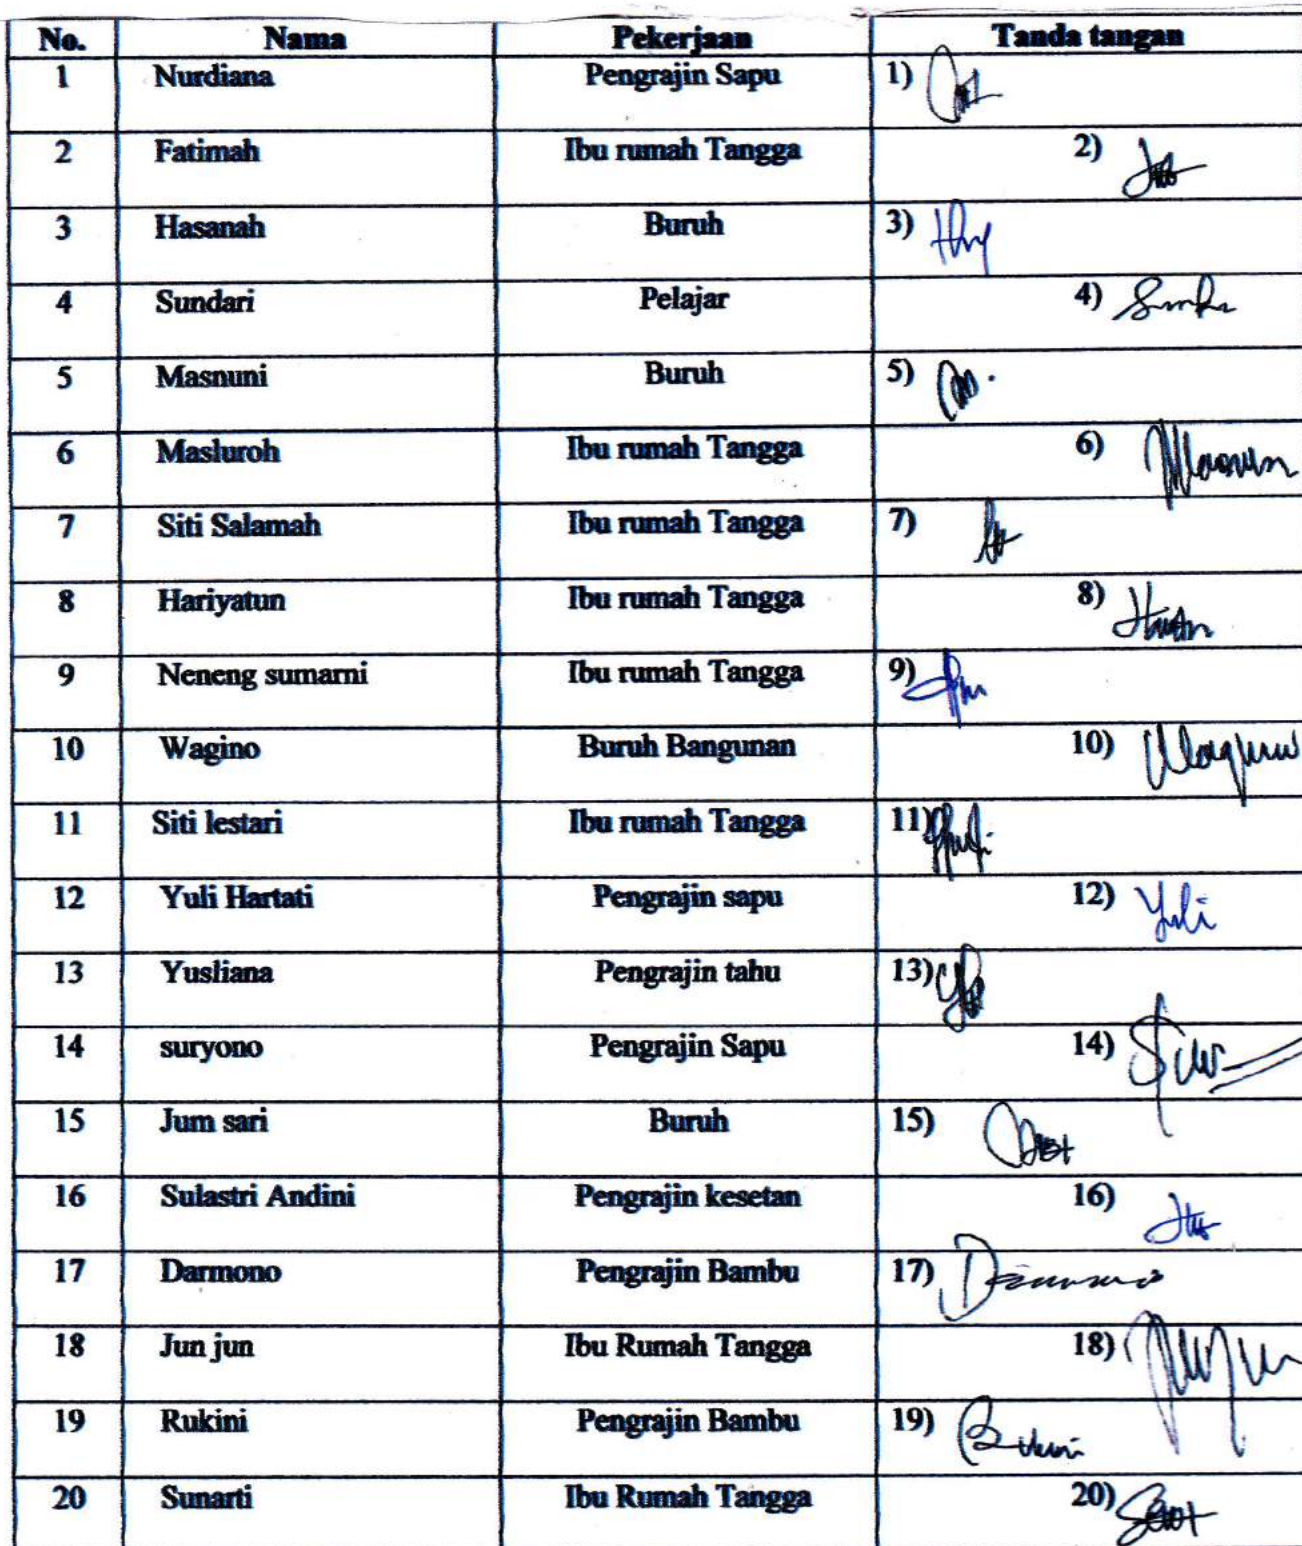 No. Nama Pekerjaan Tanda tangan
1 Nurdiana Pengrajin Sapu 1)
2 Fatimah Ibu rumah Tangga 2)
3 Hasanah Buruh 3)
4 Sundari Pelajar 4)
5 Masnuni Buruh 5)
6 Masluroh Ibu rumah Tangga 6)
7 Siti Salamah Ibu rumah Tangga 7)
8 Hariyatun Ibu rumah Tangga 8)
9 Neneng sumarni Ibu rumah Tangga 9)
10 Wagino Buruh Bangunan 10)
11 Siti lestari Ibu rumah Tangga 11)
12 Yuli Hartati Pengrajin sapu 12) Yuli
13 Yusliana Pengrajin tahu 13)
14 suryono Pengrajin Sapu 14)
15 Jum sari Buruh 15)
16 Sulastri Andini Pengrajin kesetan 16)
17 Darmono Pengrajin Bambu 17)
18 Jun jun Ibu Rumah Tangga 18)
19 Rukini Pengrajin Bambu 19)
20 Sunarti Ibu Rumah Tangga 20)